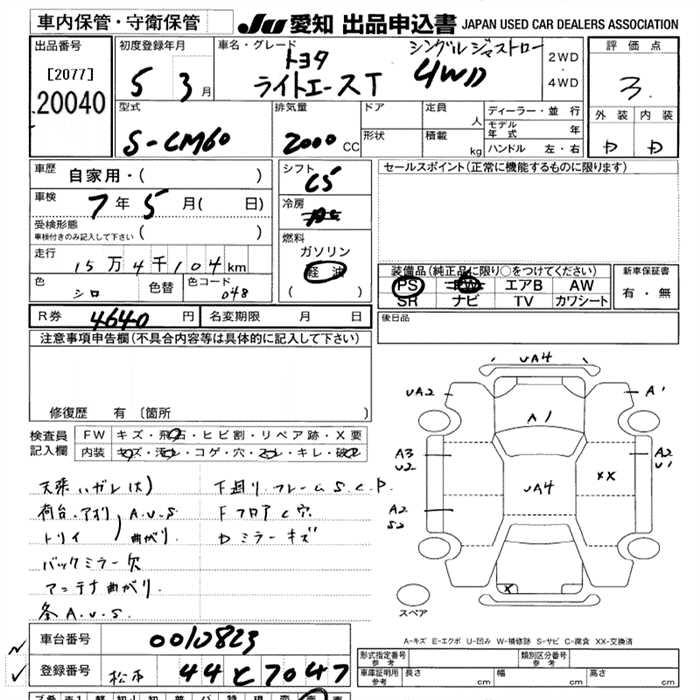 車内保管・守衛保管
JU 愛知 出品申込書 JAPAN USED CAR DEALERS ASSOCIATION
出品番号
[2077]
20040
初度登録年月
5 3 月
車名・グレード
トヨタ
シングルジャストロー
ライトエースT 4WD
2WD
・
4WD
評価点
3.
外装 内装
D D
型式
S-CM60
排気量
2000 CC
ドア
形状
定員
人
積載
kg
ディーラー・並行
モデル年式 年
ハンドル 左・右
車歴
自家用・( )
車検
7年 5月( 日)
受検形態
車検付きのみ記入して下さい ( )
走行
15万4千104 km
色
シロ
色替
色コード
048
シフト
C5
冷房
AC
燃料
ガソリン
軽油
( )
セールスポイント(正常に機能するものに限ります)
装備品(純正品に限り○をつけてください)
PS PW エアB AW
SR ナビ TV カワシート
新車保証書
有・無
R券 4640 円
名変期限 月 日
後日品
注意事項申告欄(不具合内容等は具体的に記入して下さい)
修復歴 有 〔箇所
検査員
記入欄
FW キズ・飛石・ヒビ割・リペア跡・X要
内装 キズ・汚レ・コゲ・穴・スレ・キレ・破レ
天来ハガレ(大)
荷台.アオリ
トリイ
A.U.S
曲がり.
バックミラー欠
アンテナ曲がり.
各A.U.S.
下廻り.フレームS.C.P.
Fフロア C穴
Dミラーキズ
UA4
UA2
A1
A1
A3
U2
A2
U1
XX
UA4
A2
S2
X
スペア
A-キズ E-エクボ U-凹み W-補修跡 S-サビ C-腐食 XX-交換済
車台番号 0010823
登録番号 松本 44 と 7047
型式指定番号
参考
類別区分番号
参考
車庫証明用
参考
長さ cm
幅 cm
高さ cm